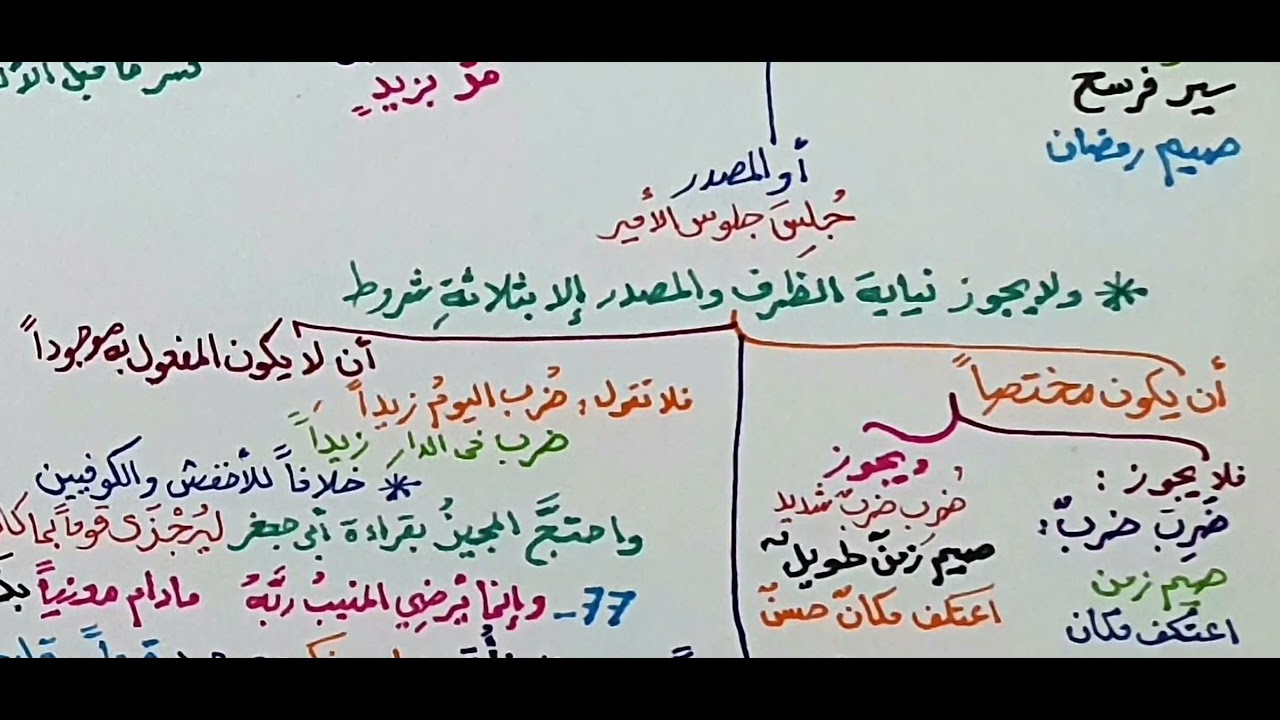 سير فرسخ
صيم رمضان
بزيدٍ
كسر ما قبل
أو المصدر
جُلِسَ جلوس الأمير
* ولا يجوز نيابة الظرف والمصدر إلا بثلاثةِ شروط
أن يكون مختصاً
فلا يجوز :
ضُرِبَ ضربٌ :
صيم زمن
اعتكف مكان
ويجوز
ضُرِب ضربٌ شديد
صيم زمنٌ طويل
اعتكف مكانٌ حسنٌ
أن لا يكون المفعول به موجوداً
فلا تقول : ضُرب اليومُ زيداً
ضرب في الدار زيداً
* خلافاً للأخفش والكوفيين
واحتجَّ المجيزُ بقراءة أبي جعفر ليُجْزَى قوماً بما
77- وإنما يُرضِي المنيبُ ربَّهُ مادام معنياً